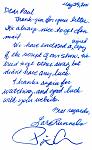 May 25, 200
Dear Paul
Thank you for your letter.
It's always nice to get fan
mail.
We have enclosed a signed
copy
of the script of our show, we
most often away but
didn't have any luck.
Thanks again for
watching, and good luck
with your website.
Best regards,